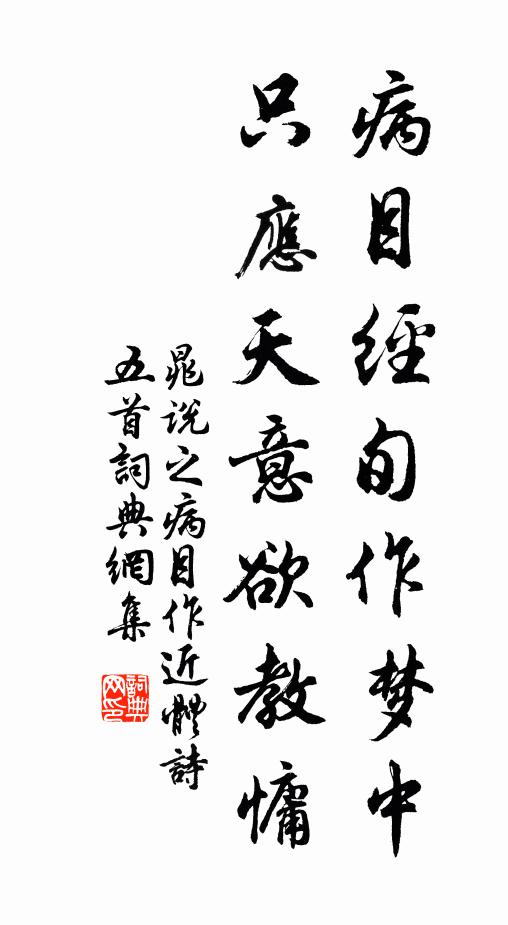 病目經旬作梦中
只應天意欲教慵
晁説之病目作近體詩
五首詞典網集
詞典
网印